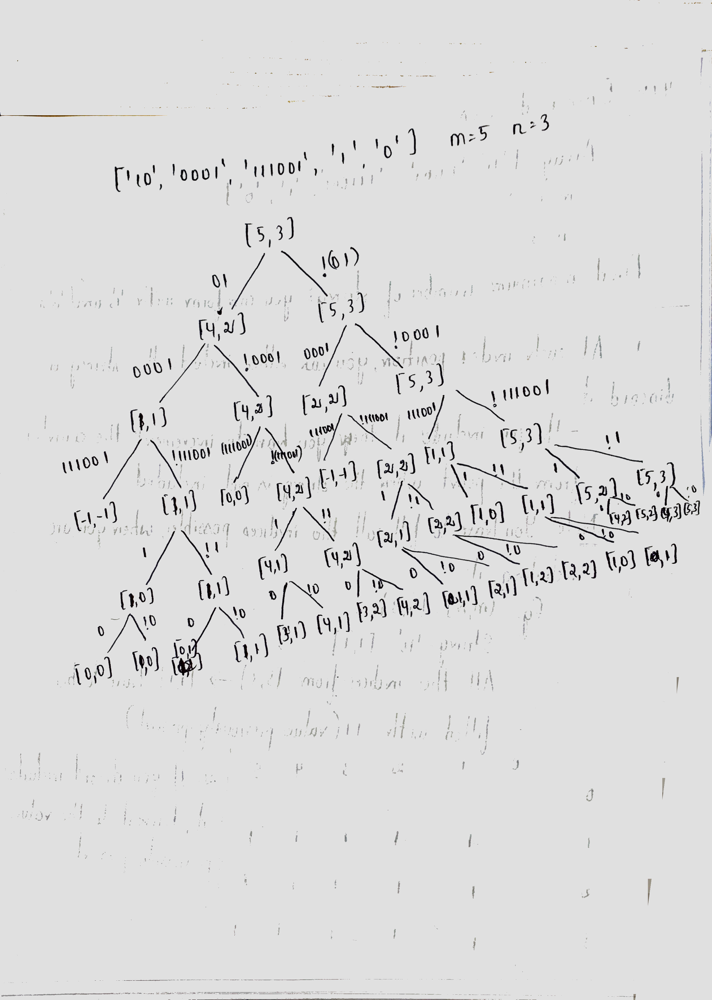 ['10', '0001', '111001', '1', '0'] m=5 n=3
[5,3]
01 !(01)
[4,2] [5,3]
0001 !0001 0001 !0001
[1,1] [4,2] [2,2] [5,3]
111001 !111001 (111001) !(111001) 111001 111001 111001 !111001
[-1,-1] [1,1] [0,0] [4,2] [-1,-1] [2,2] [1,1] [5,3]
1 !1 1 !1 1 !1 1 !1 1 !1
[1,0] [1,1] [4,1] [4,2] [2,1] [2,2] [1,0] [1,1] [5,2] [5,3]
0 !0 0 !0 0 !0 0 !0 0 !0 0 !0 0 !0 0 !0
[0,0] [1,0] [0,1] [1,1] [3,1] [4,1] [3,2] [4,2] [1,1] [2,1] [1,2] [2,2] [1,0] [0,1] [4,2] [5,2] [4,3] [5,3]